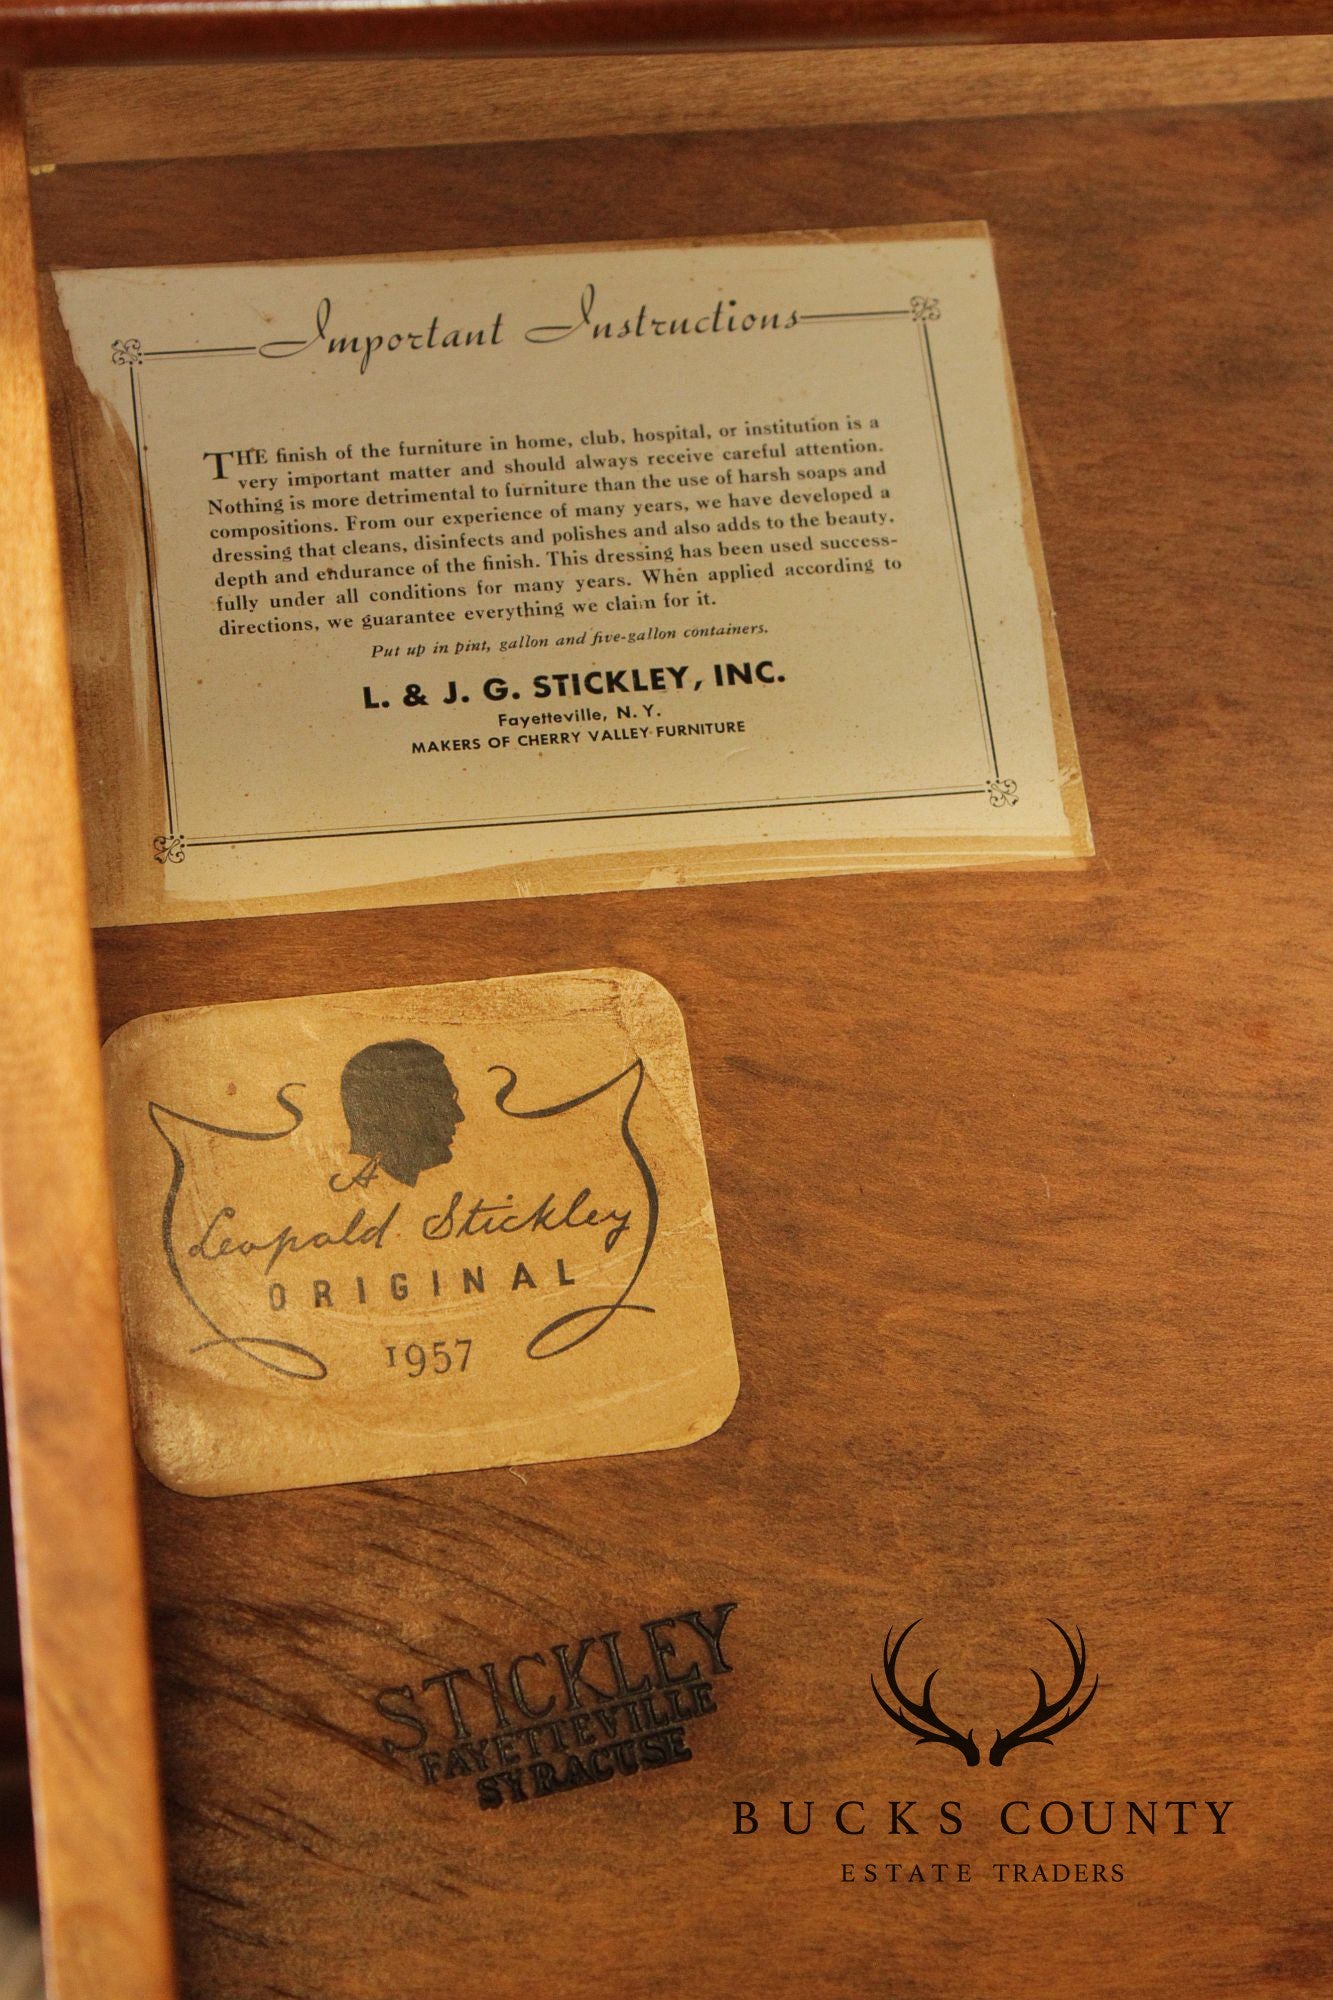 Important Instructions
THE finish of the furniture in home, club, hospital, or institution is a
very important matter and should always receive careful attention.
Nothing is more detrimental to furniture than the use of harsh soaps and
compositions. From our experience of many years, we have developed a
dressing that cleans, disinfects and polishes and also adds to the beauty,
depth and endurance of the finish. This dressing has been used success-
fully under all conditions for many years. When applied according to
directions, we guarantee everything we claim for it.
Put up in pint, gallon and five-gallon containers.
L. & J. G. STICKLEY, INC.
Fayetteville, N. Y.
MAKERS OF CHERRY VALLEY FURNITURE
A
Leopold Stickley
ORIGINAL
1957
STICKLEY
FAYETTEVILLE
SYRACUSE
BUCKS COUNTY
ESTATE TRADERS